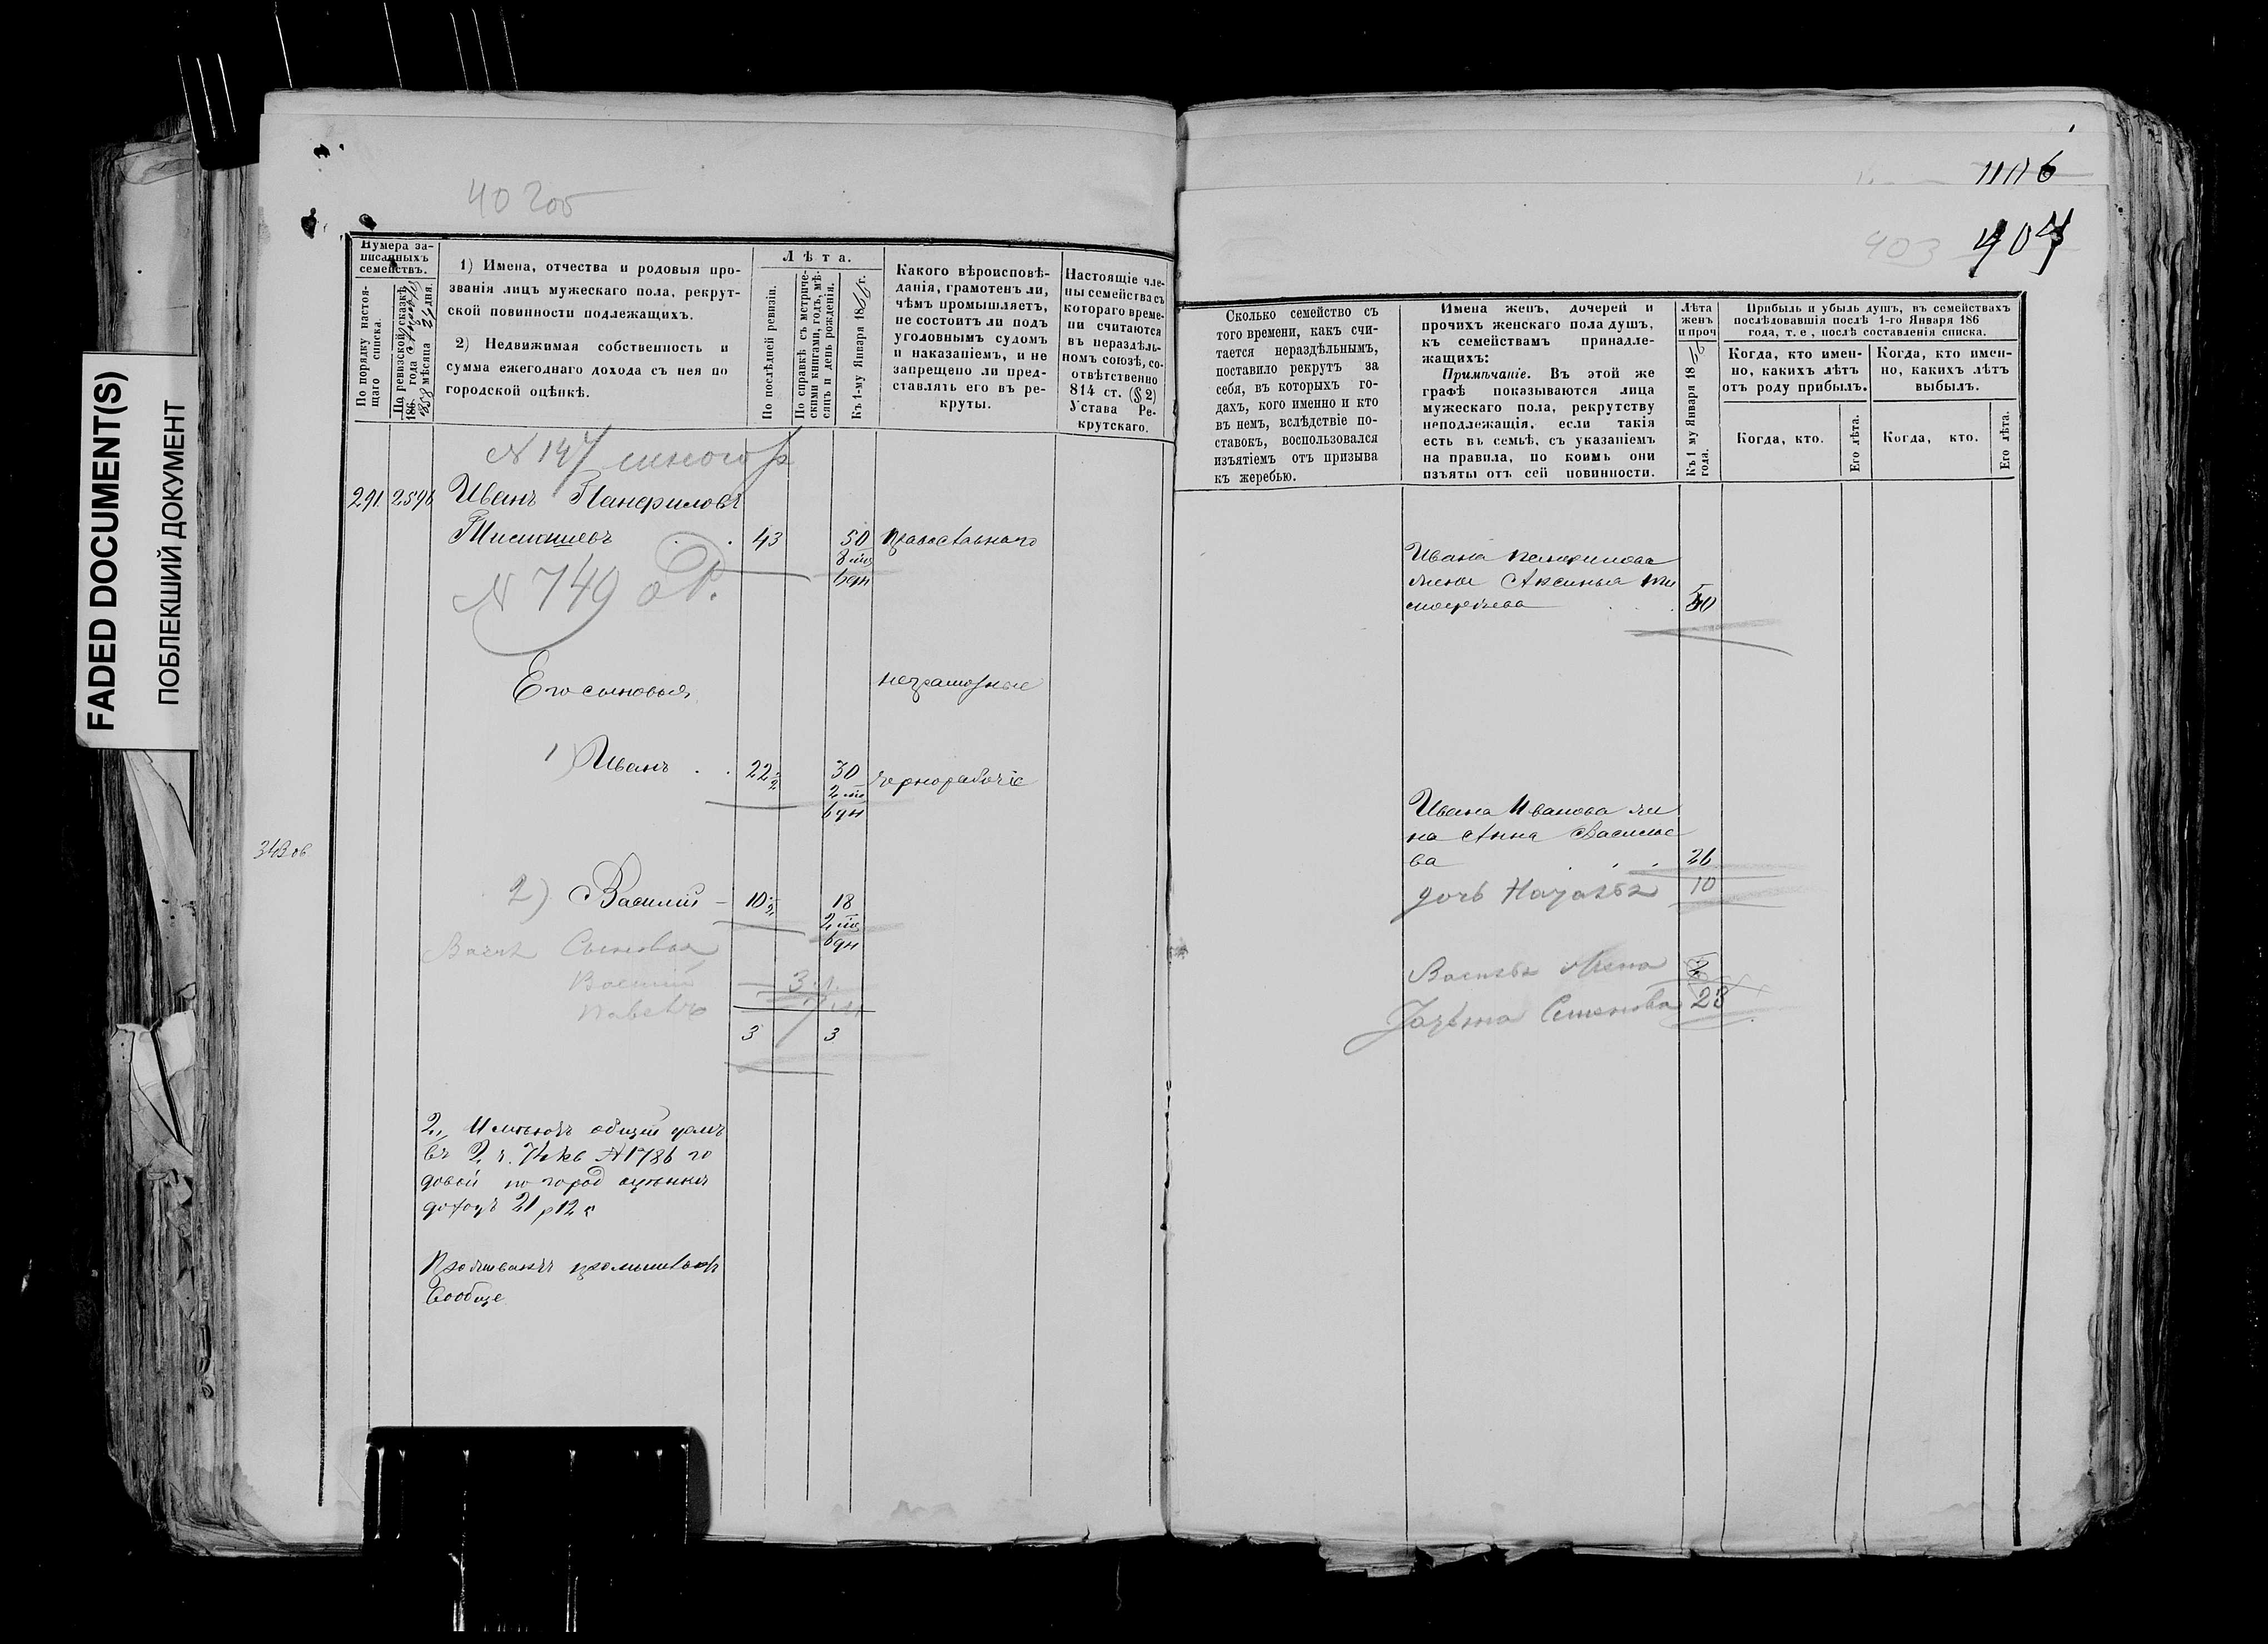 FADED DOCUMENT(S)
ПОБЛЕКШИЙ ДОКУМЕНТ
Нумера за-
писанныхъ
семействъ.
По порядку настоя-
щаго списка.
По ревизской сказкѣ
186 года
мѣсяца дня.
1) Имена, отчества и родовыя про-
званія лицъ мужескаго пола, рекрут-
ской повинности подлежащихъ.
2) Недвижимая собственность и
сумма ежегоднаго дохода съ нея по
городской оцѣнкѣ.
Лѣта.
По послѣдней ревизіи.
По справкѣ съ метриче-
скими книгами, годъ, мѣ-
сяцъ и день рожденія.
Къ 1-му Января 18 г.
Какого вѣроисповѣ-
данія, грамотенъ ли,
чѣмъ промышляетъ,
не состоитъ ли подъ
уголовнымъ судомъ
и наказаніемъ, и не
запрещено ли пред-
ставлять его въ ре-
круты.
Настоящіе чле-
ны семейства съ
котораго време-
ни считаются
въ нераздѣль-
номъ союзѣ, со-
отвѣтственно
814 ст. (§ 2)
Устава Ре-
крутскаго.
N 147
291 2596 Иванъ Панфиловъ
43 50 православнаго
6 дн
N 749
Его сыновья
неграмотные
1) Иванъ 22 1/2 30 чернорабочіе
2 м
6 дн
343 об
2) Василій 10 1/2 18
2 м
6 дн
Сыновья
Василий 3
Павелъ
3 3
2, Имѣютъ общій домъ
въ 2 ч. 71 кв N 1786 го
довой по город оцѣнкѣ
доходъ 21 р 12 к
Проживаютъ
Вообще
406
403 407
Сколько семейство съ
того времени, какъ счи-
тается нераздѣльнымъ,
поставило рекрутъ за
себя, въ которыхъ го-
дахъ, кого именно и кто
въ немъ, вслѣдствіе по-
ставокъ, воспользовался
изъятіемъ отъ призыва
къ жеребью.
Имена женъ, дочерей и
прочихъ женскаго пола душъ,
къ семействамъ принадле-
жащихъ:
Примѣчаніе. Въ этой же
графѣ показываются лица
мужескаго пола, рекрутству
неподлежащія, если такія
есть въ семьѣ, съ указаніемъ
на правила, по коимъ они
изъяты отъ сей повинности.
Лѣта
женъ
и проч
Къ 1 му Января 18
года.
Прибыль и убыль душъ, въ семействахъ
послѣдовавшія послѣ 1-го Января 186
года, т. е, послѣ составленія списка.
Когда, кто имен-
но, какихъ лѣтъ
отъ роду прибылъ.
Когда, кто имен-
но, какихъ лѣтъ
выбылъ.
Когда, кто.
Его лѣта.
Когда, кто.
Его лѣта.
Ивана Панфилова
жена Аксинья Ти
мофѣева
Ивана Иванова же
на Анна Василье
ва 26
дочь Наталья 10
Василья Жена
Татьяна Семенова 23